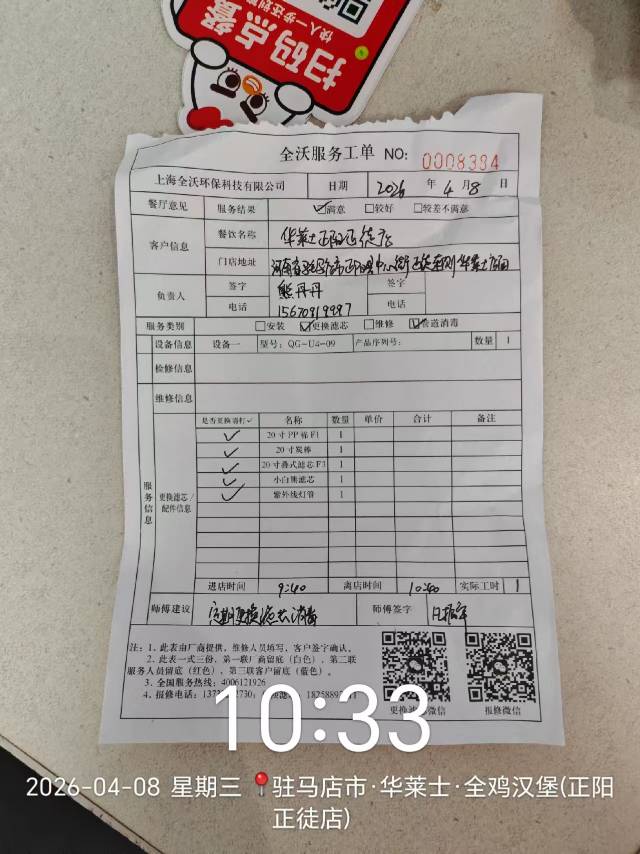 扫码点餐
快人一步
全沃服务工单 NO: 0008384
上海全沃环保科技有限公司 日期 2026 年 4 月 8 日
餐厅意见 服务结果 ☑满意 □较好 □较差不满意
客户信息 餐饮名称 华莱士正阳正徒店
门店地址 河南省驻马店市正阳县中心街
负责人 签字 熊丹丹 签字
电话 15670819987 电话
服务类别 □安装 ☑更换滤芯 □维修 ☑管道消毒
设备信息 设备一 型号: QG-U4-09 产品序列号: 数量 1
检修信息
维修信息
服务信息 更换滤芯/配件信息
是否更换请打✓ 名称 数量 单价 合计 备注
✓ 20寸PP棉F1 1
✓ 20寸炭棒 1
✓ 20寸叠式滤芯F3 1
✓ 小白熊滤芯 1
✓ 紫外线灯管 1
进店时间 9:40 离店时间 10:40 实际工时 1
师傅建议 定期更换滤芯消毒 师傅签字
注: 1、此表由厂商提供, 维修人员填写, 客户签字确认。
2、此表一式三份, 第一联厂商留底(白色), 第二联
服务人员留底(红色), 第三联客户留底(蓝色)。
3、全国服务热线: 4006121926
4、报修电话:
更换滤芯微信 报修微信
10:33
2026-04-08 星期三 驻马店市·华莱士·全鸡汉堡(正阳
正徒店)